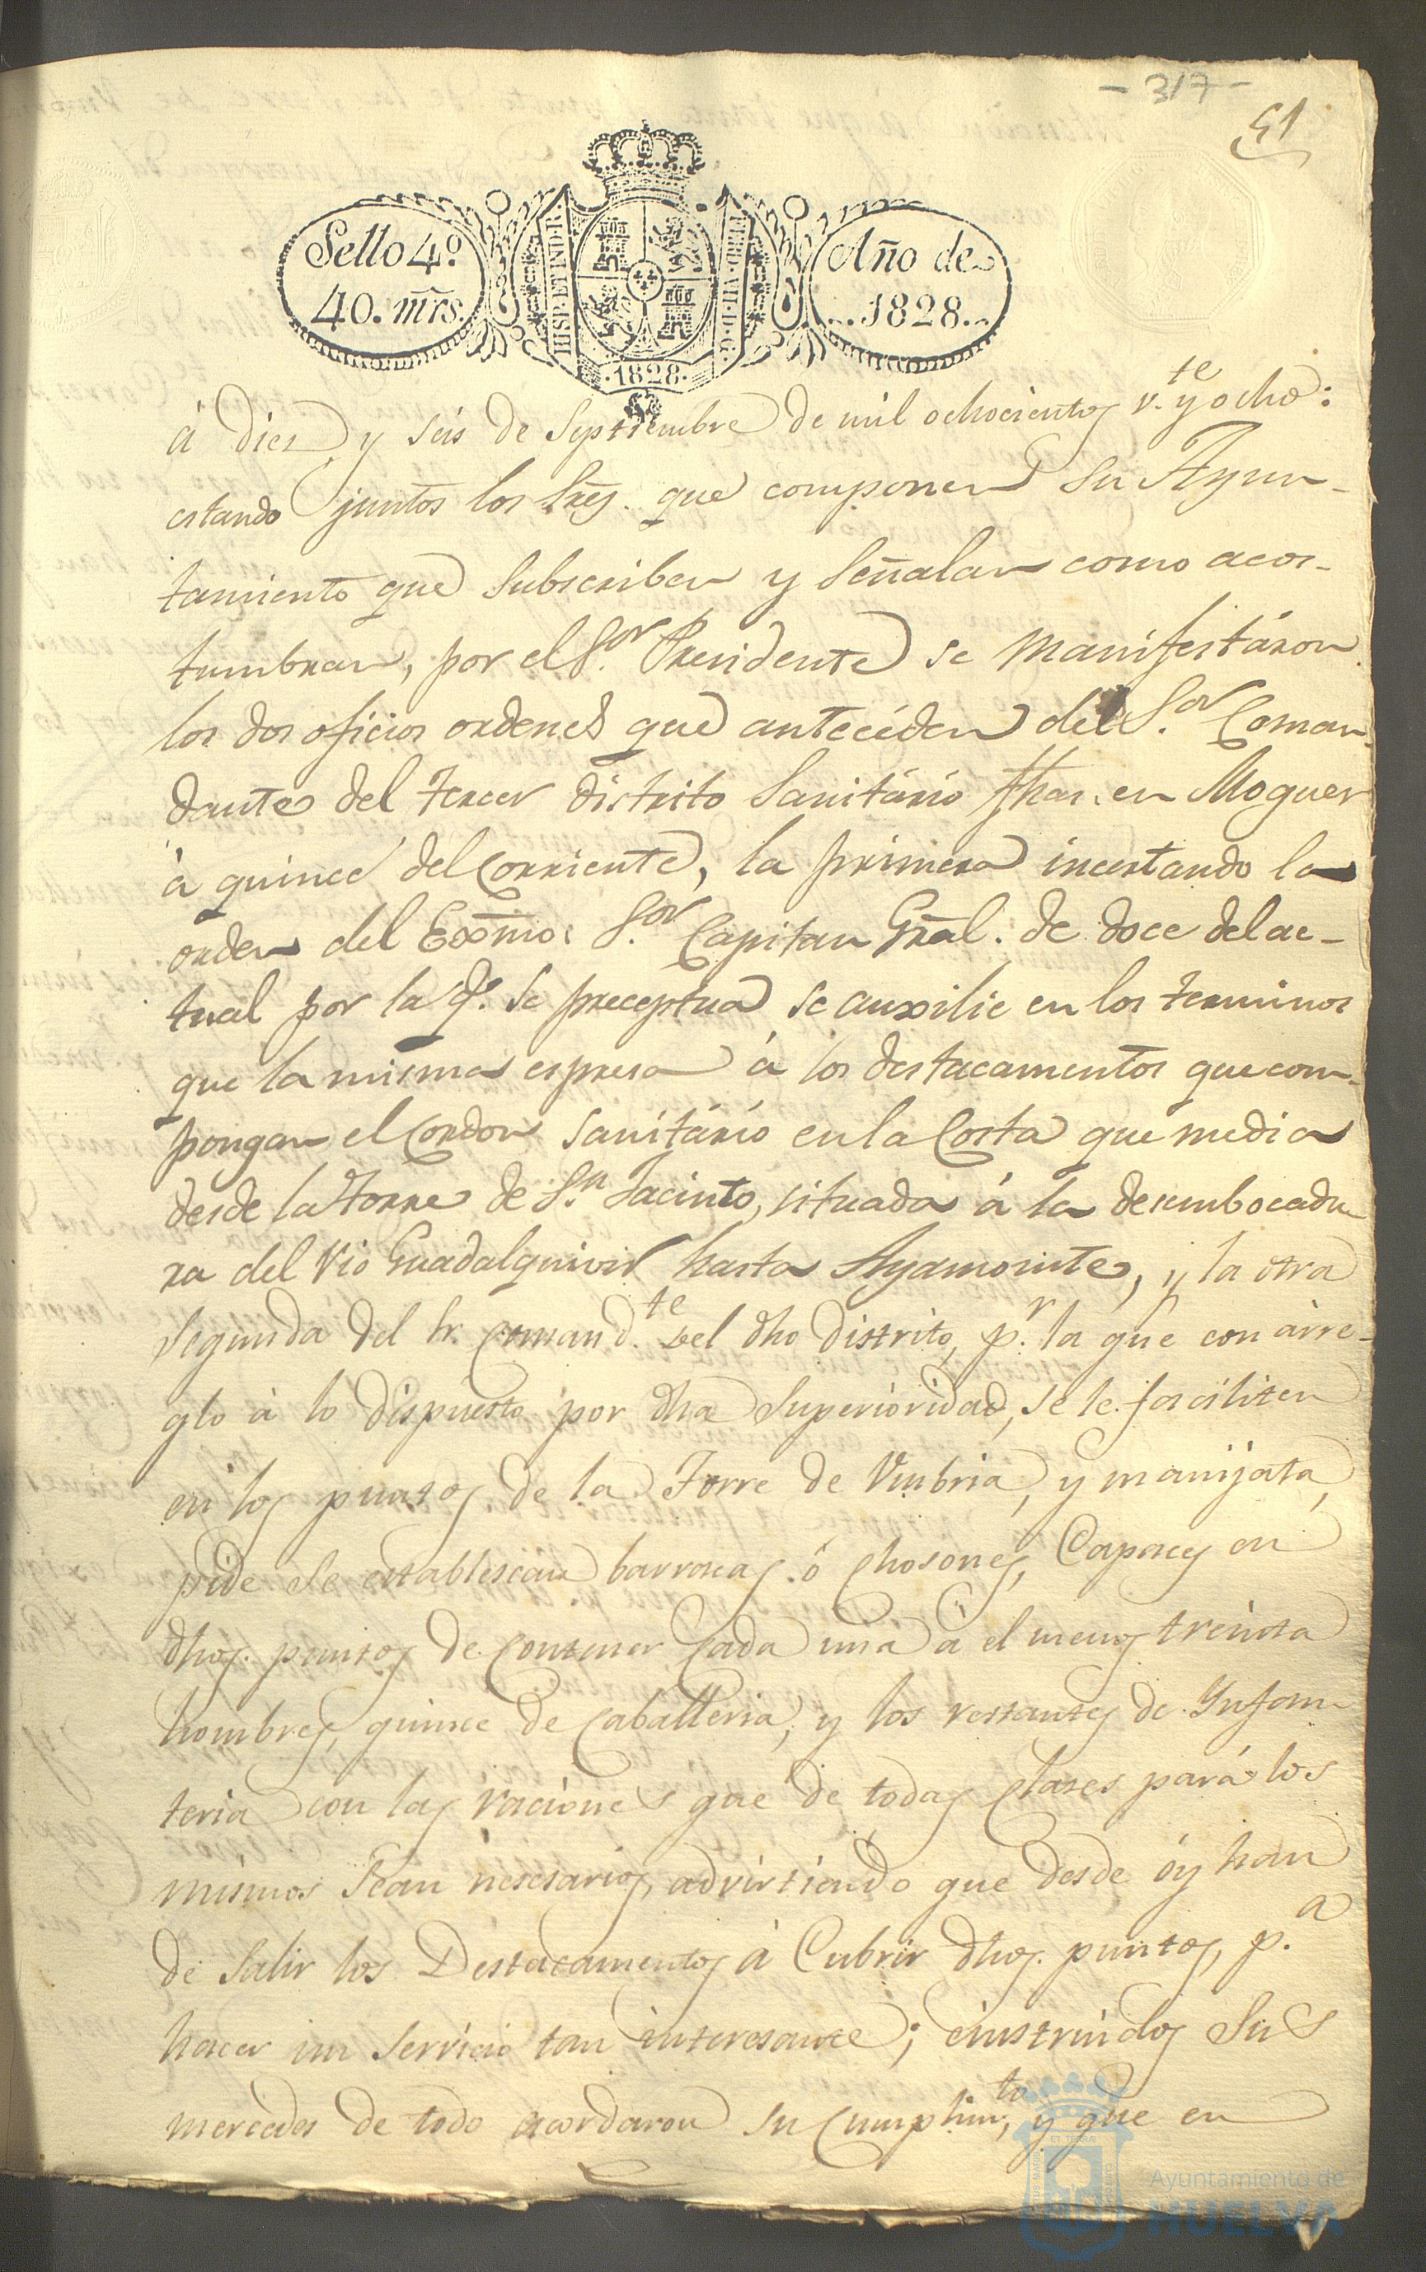 - 317 -
51
Sello 4º
40. mrs.
HISP. ET IND. R.
FERD. VII. D. G.
Año de
1828.
1828.
á diez y seis de Septiembre de mil ochocientos v.te y ocho:
estando juntos los Sres. que componen su Ayun-
tamiento que subscriben y señalan como acos-
tumbran, por el S.or Presidente se manifestáron
los dos oficios ordenes que antecéden del S.or Coman-
dante del tercer distrito Sanitário fhas. en Moguer
á quince del corriente, la primera incertando la
orden del Exmo. S.or Capitan Gral. de doce del ac-
tual por la q.e se preceptua se auxilie en los terminos
que la misma espresa á los destacamentos que com-
pongan el cordon sanitário en la Costa que media
desde la torre de S.n Jacinto, situada á la desembocadu-
ra del rio Guadalquivir hasta Ayamonte, y la otra
segunda del Sr. comand.te del dho distrito, p.r la que con árre-
glo á lo dispuesto por dha Superioridad, se le faciliten
en los puntos de la Torre de Umbria, y manijata,
pide se establescan barracas ó chosones, Capaces en
dhos. puntos de contener Cada una á el menos treinta
hombres, quince de caballeria, y los restantes de Infan-
teria con las raciones que de todas clases pará los
mismos sean nesesarios, advirtiendo que desde óy han
de salir los Destacamentos á Cubrir dhos. puntos, p.a
hacer un servicio tan interesante; einstruidos Sus
mercedes de todo acordaron su cumplim.to, y que en
Ayuntamiento de
HUELVA